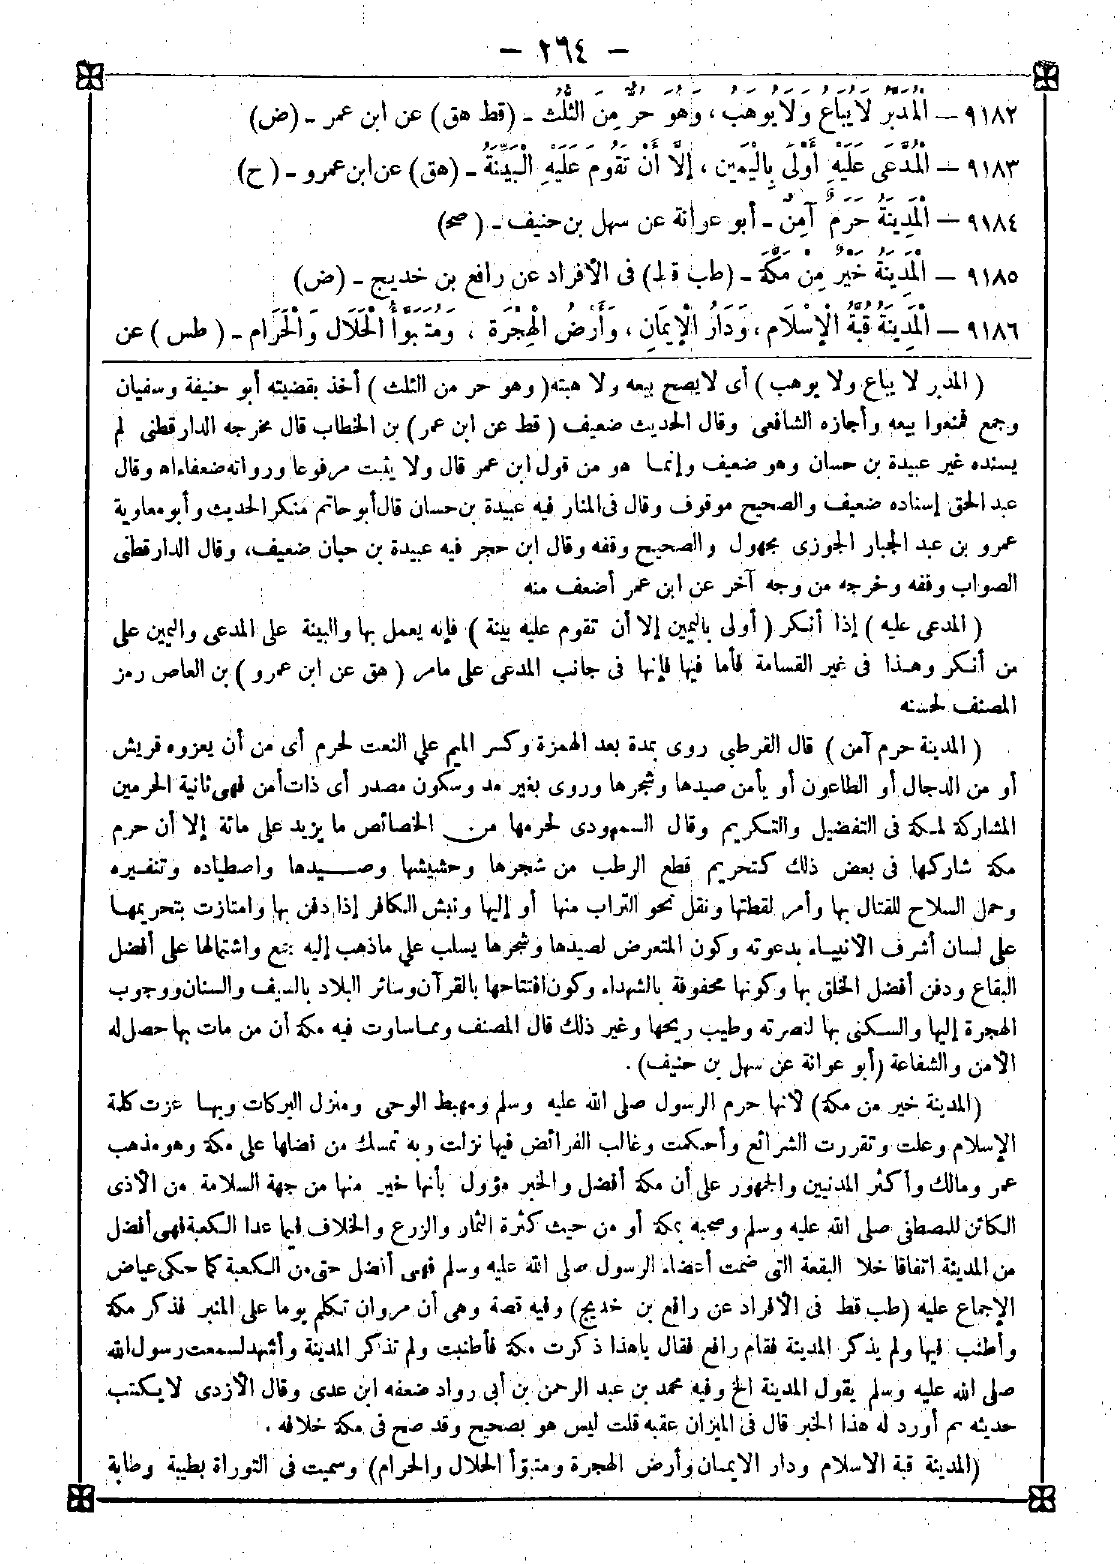 — ٢٦٤ —
٩١٨٢ — الْمُدَبَّرُ لَا يُبَاعُ وَلَا يُوهَبُ، وَهُوَ حُرٌّ مِنَ الثُّلُثِ - (قط هق) عن ابن عمر - (ض)
٩١٨٣ — الْمُدَّعَى عَلَيْهِ أَوْلَى بِالْيَمِينِ، إِلَّا أَنْ تَقُومَ عَلَيْهِ الْبَيِّنَةُ - (هق) عن ابن عمرو - (ح)
٩١٨٤ — الْمَدِينَةُ حَرَمٌ آمِنٌ - أبو عوانة عن سهل بن حنيف - (صح)
٩١٨٥ — الْمَدِينَةُ خَيْرٌ مِنْ مَكَّةَ - (طب قط) فى الأفراد عن رافع بن خديج - (ض)
٩١٨٦ — الْمَدِينَةُ قُبَّةُ الْإِسْلَامِ، وَدَارُ الْإِيمَانِ، وَأَرْضُ الْهِجْرَةِ، وَمُتَبَوَّأُ الْحَلَالِ وَالْحَرَامِ - (طس) عن
(المدبر لا يباع ولا يوهب) أى لا يصح بيعه ولا هبته (وهو حر من الثلث) أخذ بقضيته أبو حنيفة وسفيان
وجمع فمنعوا بيعه وأجازه الشافعى وقال الحديث ضعيف (قط عن ابن عمر) بن الخطاب قال مخرجه الدارقطنى لم
يسنده غير عبيدة بن حسان وهو ضعيف وإنما هو من قول ابن عمر قال ولا يثبت مرفوعا ورواته ضعفاء اه وقال
عبد الحق إسناده ضعيف والصحيح موقوف وقال فى المنار فيه عبيدة بن حسان قال أبو حاتم منكر الحديث وأبو معاوية
عمرو بن عبد الجبار الجوزى مجهول والصحيح وقفه وقال ابن حجر فيه عبيدة بن حيان ضعيف، وقال الدارقطنى
الصواب وقفه وخرجه من وجه آخر عن ابن عمر أضعف منه
(المدعى عليه) إذا أنكر (أولى باليمين إلا أن تقوم عليه بينة) فإنه يعمل بها والبينة على المدعى واليمين على
من أنكر وهذا فى غير القسامة فأما فيها فإنها فى جانب المدعى على مامر (هق عن ابن عمرو) بن العاص رمز
المصنف لحسنه
(المدينة حرم آمن) قال القرطبى روى بمدة بعد الهمزة وكسر الميم على النعت لحرم أى من أن يعزوه قريش
أو من الدجال أو الطاعون أو يأمن صيدها وشجرها وروى بغير مد وسكون مصدر أى ذات أمن فهى ثانية الحرمين
المشاركة لمكة فى التفضيل والتكريم وقال السمهودى لحرمها من الخصائص ما يزيد على مائة إلا أن حرم
مكة شاركها فى بعض ذلك كتحريم قطع الرطب من شجرها وحشيشها وصيدها واصطياده وتنفيره
وحمل السلاح للقتال بها وأمر لقطتها ونقل نحو التراب منها أو إليها ونبش الكافر إذا دفن بها وامتازت بتحريمها
على لسان أشرف الأنبياء بدعوته وكون المتعرض لصيدها وشجرها يسلب على ماذهب إليه جمع واشتمالها على أفضل
البقاع ودفن أفضل الخلق بها وكونها محفوفة بالشهداء وكون افتتاحها بالقرآن وسائر البلاد بالسيف والسنان ووجوب
الهجرة إليها والسكنى بها لنصرته وطيب ريحها وغير ذلك قال المصنف ومما ساوت فيه مكة أن من مات بها حصل له
الأمن والشفاعة (أبو عوانة عن سهل بن حنيف).
(المدينة خير من مكة) لأنها حرم الرسول صلى الله عليه وسلم ومهبط الوحى ومنزل البركات وبها عزت كلمة
الإسلام وعلت وتقررت الشرائع وأحكمت وغالب الفرائض فيها نزلت وبه تمسك من فضلها على مكة وهو مذهب
عمر ومالك وأكثر المدنيين والجمهور على أن مكة أفضل والخبر مؤول بأنها خير منها من جهة السلامة من الأذى
الكائن للمصطفى صلى الله عليه وسلم وصحبه بمكة أو من حيث كثرة الثمار والزرع والخلاف فيما عدا الكعبة فهى أفضل
من المدينة اتفاقا خلا البقعة التى ضمت أعضاء الرسول صلى الله عليه وسلم فهى أفضل حتى من الكعبة كما حكى عياض
الإجماع عليه (طب قط فى الأفراد عن رافع بن خديج) وفيه قصة وهى أن مروان تكلم يوما على المنبر فذكر مكة
وأطنب فيها ولم يذكر المدينة فقام رافع فقال ياهذا ذكرت مكة فأطنبت ولم تذكر المدينة وأشهد لسمعت رسول الله
صلى الله عليه وسلم يقول المدينة الخ وفيه محمد بن عبد الرحمن بن أبى رواد ضعفه ابن عدى وقال الأزدى لا يكتب
حديثه ثم أورد له هذا الخبر قال فى الميزان عقبه قلت ليس هو بصحيح وقد صح فى مكة خلافه.
(المدينة قبة الاسلام ودار الايمان وأرض الهجرة ومتبوّأ الحلال والحرام) وسميت فى التوراة بطيبة وطابة